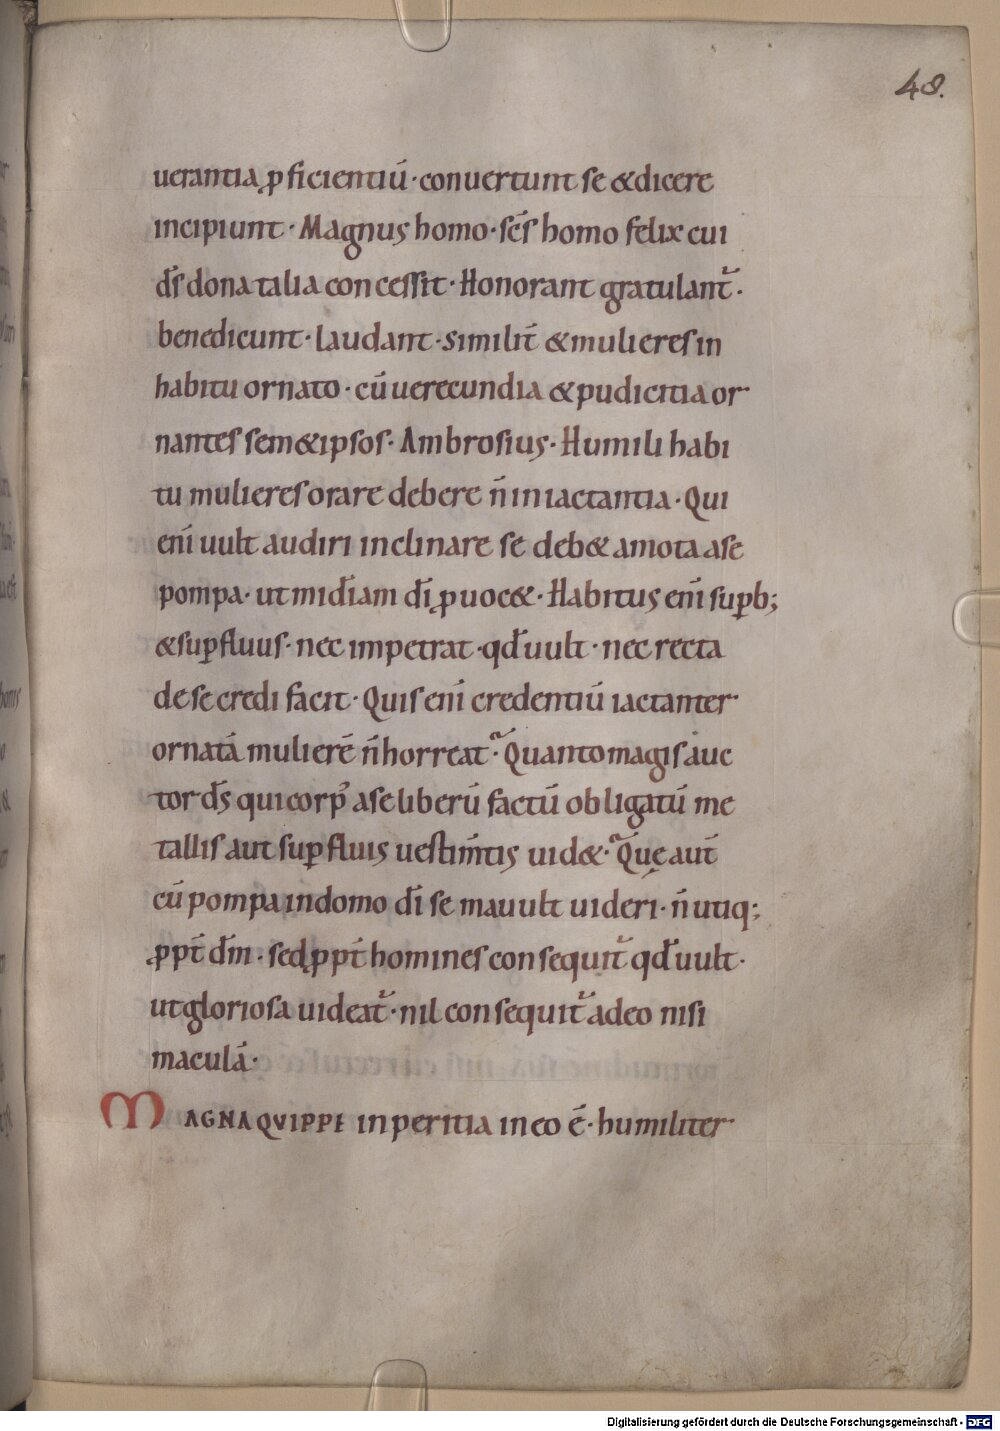 48.
uerantia ꝓficientiū · conuertunt se &dicere
incipiunt · Magnus homo · scs̄ homo felix cui
ds̄ dona talia concessit · Honorant gratulant᷑ ·
benedicunt · laudant · similit̄ & mulieres in
habitu ornato · cū uerecundia & pudicitia or
nantes sem&ipsos · Ambrosius · Humili habi
tu mulieres orare debere n̄ in iactantia · Qui
eni̅ uult audiri inclinare se deb& amota a se
pompa · ut mid̄iam dī ꝓuoc& · Habitus eni̅ suꝑb;
& suꝑfluus · nec impetrat · qd̄ uult · nec recta
de se credi facit · Quis eni̅ credentiū iactanter
ornatā mulierē n̄ horreat · Quanto magis auc
tor ds̄ qui corp᷒ a se liberū factū obligatū me
tallis aut suꝑfluis uestim̄tis uid& · Quę aut̄
cū pompa in domo dī se mauult uideri · n̄ utiq;
ꝓpt̄ dm̄ · sed ꝓpt̄ homines consequit᷑ qd̄ uult ·
ut gloriosa uideat᷑ · nil consequit᷑ a deo nisi
maculā ·
MAGNA QVIPPE inperitia in eo ē · humiliter
Digitalisierung gefördert durch die Deutsche Forschungsgemeinschaft - DFG